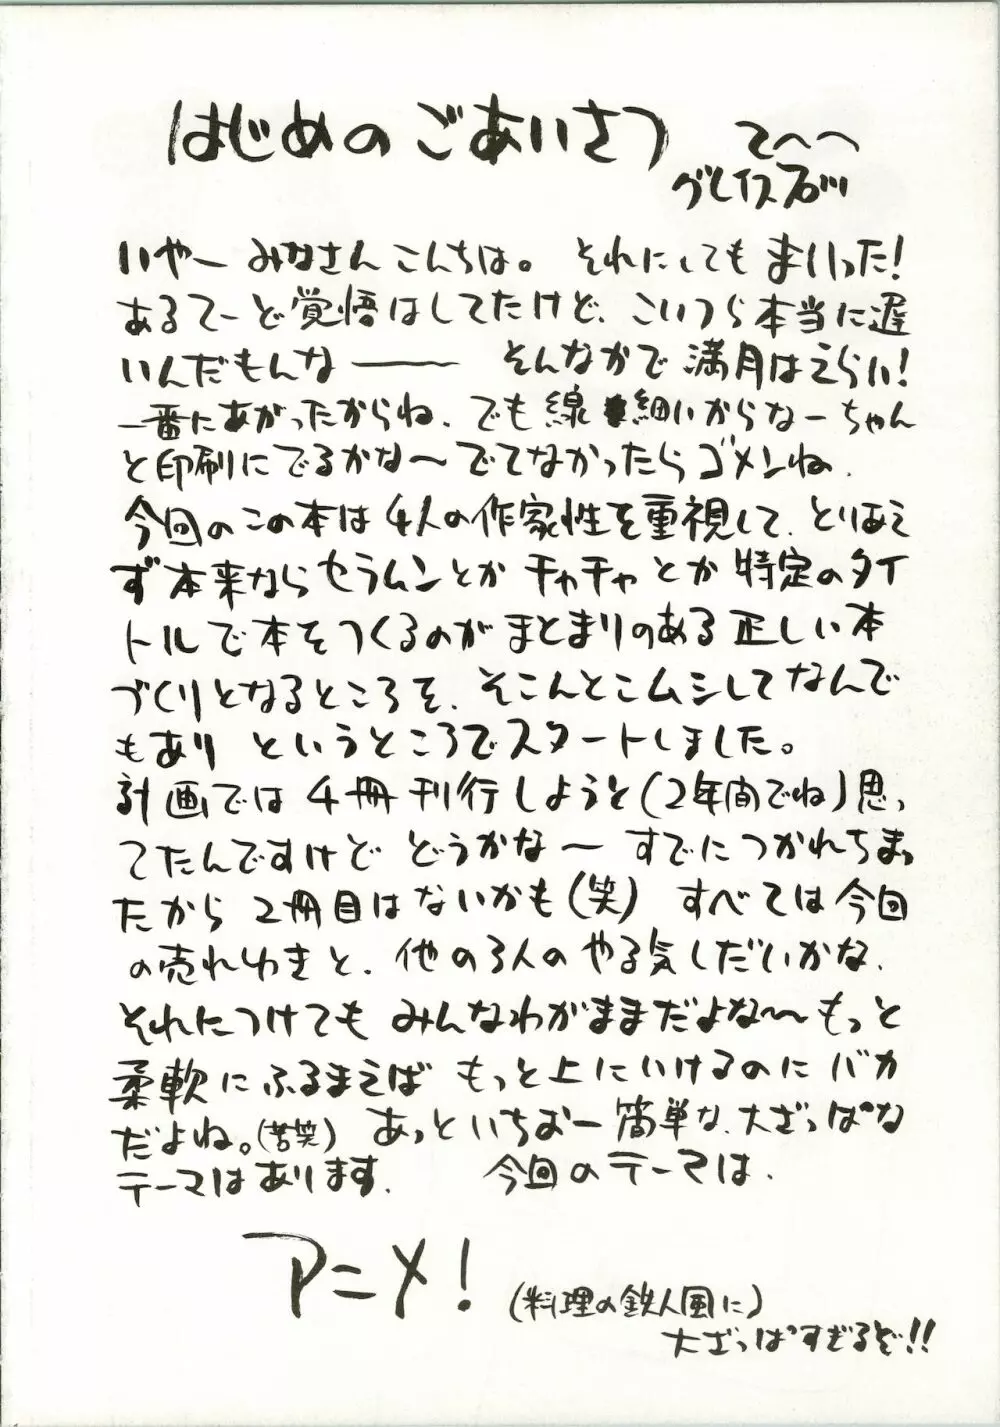 はじめのごあいさつ
てへへ
グレイス石川
いやー みなさんこんちは。 それにしてもまいった!
あるてーど覚悟はしてたけど、こいつら本当に遅
いんだもんな―― そんなかで満月はえらい!
一番にあがったからね、でも線細いからなーちゃん
と印刷にでるかな〜でてなかったらゴメンね、
今回のこの本は4人の作家性を重視して、とりあえ
ず本来ならセラムンとかチャチャとか特定のタイ
トルで本をつくるのがまとまりのある正しい本
づくりとなるところを、そこんとこムシしてなんで
もあり というところでスタートしました。
計画では4冊刊行しようと(2年間でね)思っ
てたんですけど どうかな〜 すでにつかれちまっ
たから2冊目はないかも(笑) すべては今回
の売れゆきと、他の3人のやる気しだいかな、
それにつけてもみんなわがままだよな〜〜もっと
柔軟にふるまえば もっと上にいけるのにバカ
だよね。(苦笑) あっといちおー簡単な、大ざっぱな
テーマはあります、 今回のテーマは、
アニメ!
(料理の鉄人風に)
大ざっぱすぎるぞ!!